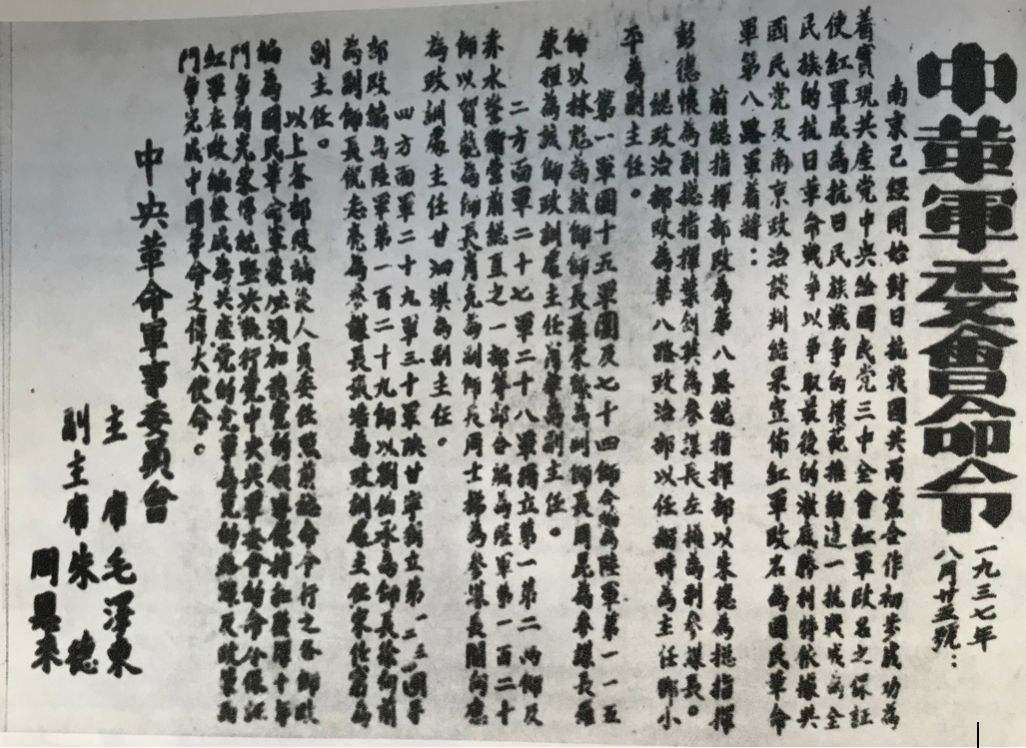 中革軍委會命令
一九三七年
八月廿五號：
南京已經開始對日抗戰國共兩黨合作初步成功為
着實現共產党中央給國民党三中全會紅軍改名之保証
使紅軍成為抗日民族戰爭的模範推動這一抗戰成為全
民族的抗日革命戰爭以爭取最後的澈底勝利特依據與
國民党及南京政治談判結果宣佈紅軍改名為國民革命
軍第八路軍着將：
前總指揮部改為第八路總指揮部以朱德為總指揮
彭德懷為副總指揮葉劍英為參謀長左權為副參謀長。
總政治部改為第八路政治部以任弼時為主任鄧小
平為副主任。
第一軍團十五軍團及七十四師合編為陸軍第一一五
師以林彪為該師師長聶榮臻為副師長周昆為參謀長羅
榮桓為該師政訓處主任蕭華為副主任。
二方面軍二十七軍二十八軍獨立第一第二兩師及
赤水警衛營前總直之一部等部合編為陸軍第一百二十
師以賀龍為師長肖克為副師長周士梯為參謀長關向應
為政訓處主任甘泗淇為副主任。
四方面軍二十九軍三十軍陝甘寧獨立第一二三四團等
部改編為陸軍第一百二十九師以劉伯承為師長徐向前
為副師長倪志亮為參謀長張浩為政訓處主任宋任窮為
副主任。
以上各部改編後人員委任照前總命令行之各師改
編為國民革命軍後必須加強党的領導保持和發揚十年
鬥爭的光榮傳統堅決執行党中央與軍委會的命令保証
紅軍在改編後成為共產党的党軍為党的路線及政策而
鬥爭完成中國革命之偉大使命。
中央革命軍事委員會
主席毛澤東
副主席朱德
周恩來